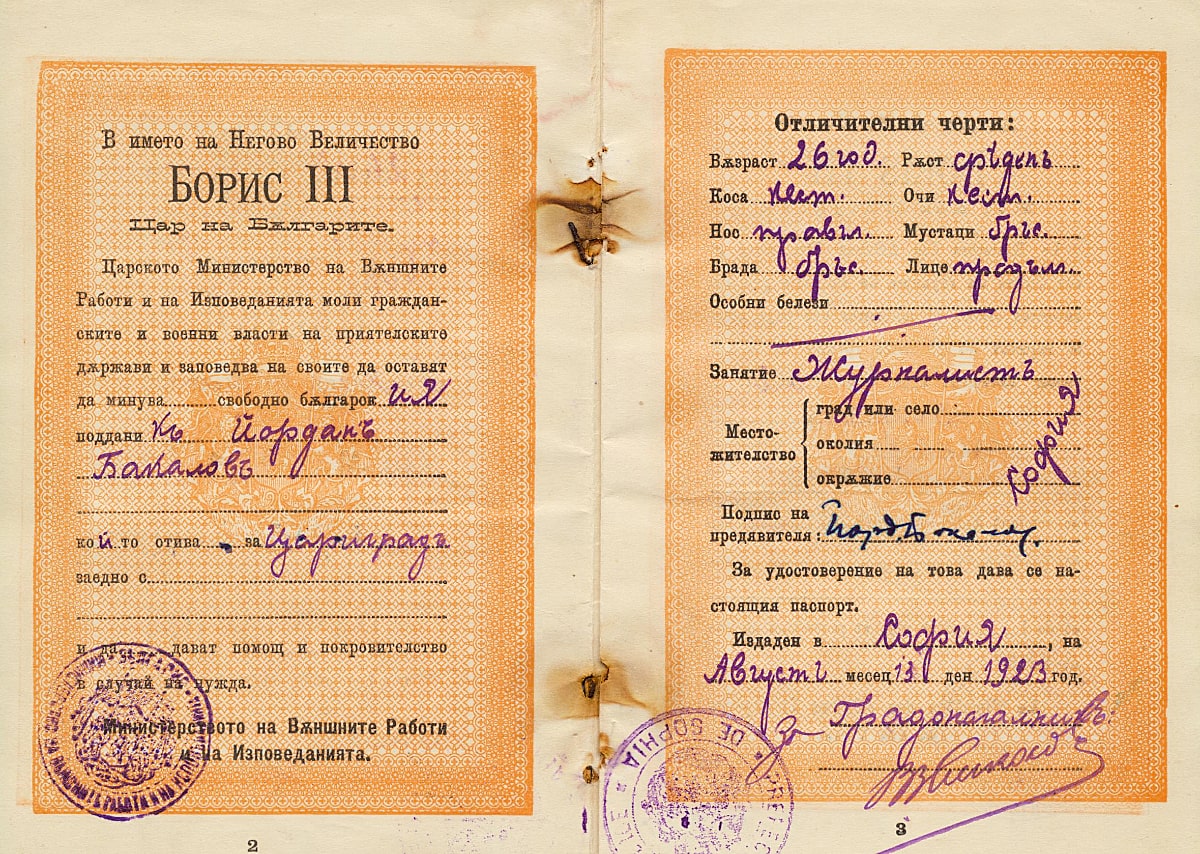 В името на Негово Величество
Борис III
Цар на Бѫлгарите.
Царското Министерство на Вѫншните
Работи и на Изповеданията моли граждан-
ските и военни власти на приятелските
дѫржави и заповедва на своите да оставят
да минува свободно бѫлгарок ия
поддани къ Йорданъ
Бакаловъ
кой то отива за Цариградъ
заедно с
и да дават помощ и покровителство
в случай на нужда.
Министерството на Вѫншните Работи
и на Изповеданията.
2
Отличителни черти:
Вѫзраст 26 год. Рѫст срѣденъ
Коса кест. Очи кест.
Нос правил. Мустаци брѣс.
Брада брѣс. Лице продѣл.
Особни белези
Занятие Журналистъ
Место-
жителство
град или село
околия
окрѫжие
София
Подпис на
предявителя: Йорд. Бакалов.
За удостоверение на това дава се на-
стоящия паспорт.
Издаден в София, на
Августъ месец 13 ден 1923 год.
За Градоначалникъ:
DE SOPHIA
3